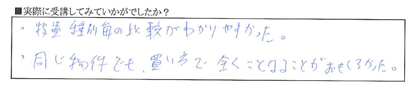 ■実際に受講してみていかがでしたか？
・物業種別毎の比較がわかりやすかった。
・同じ物件でも、買い方で全くことなることがおもしろかった。